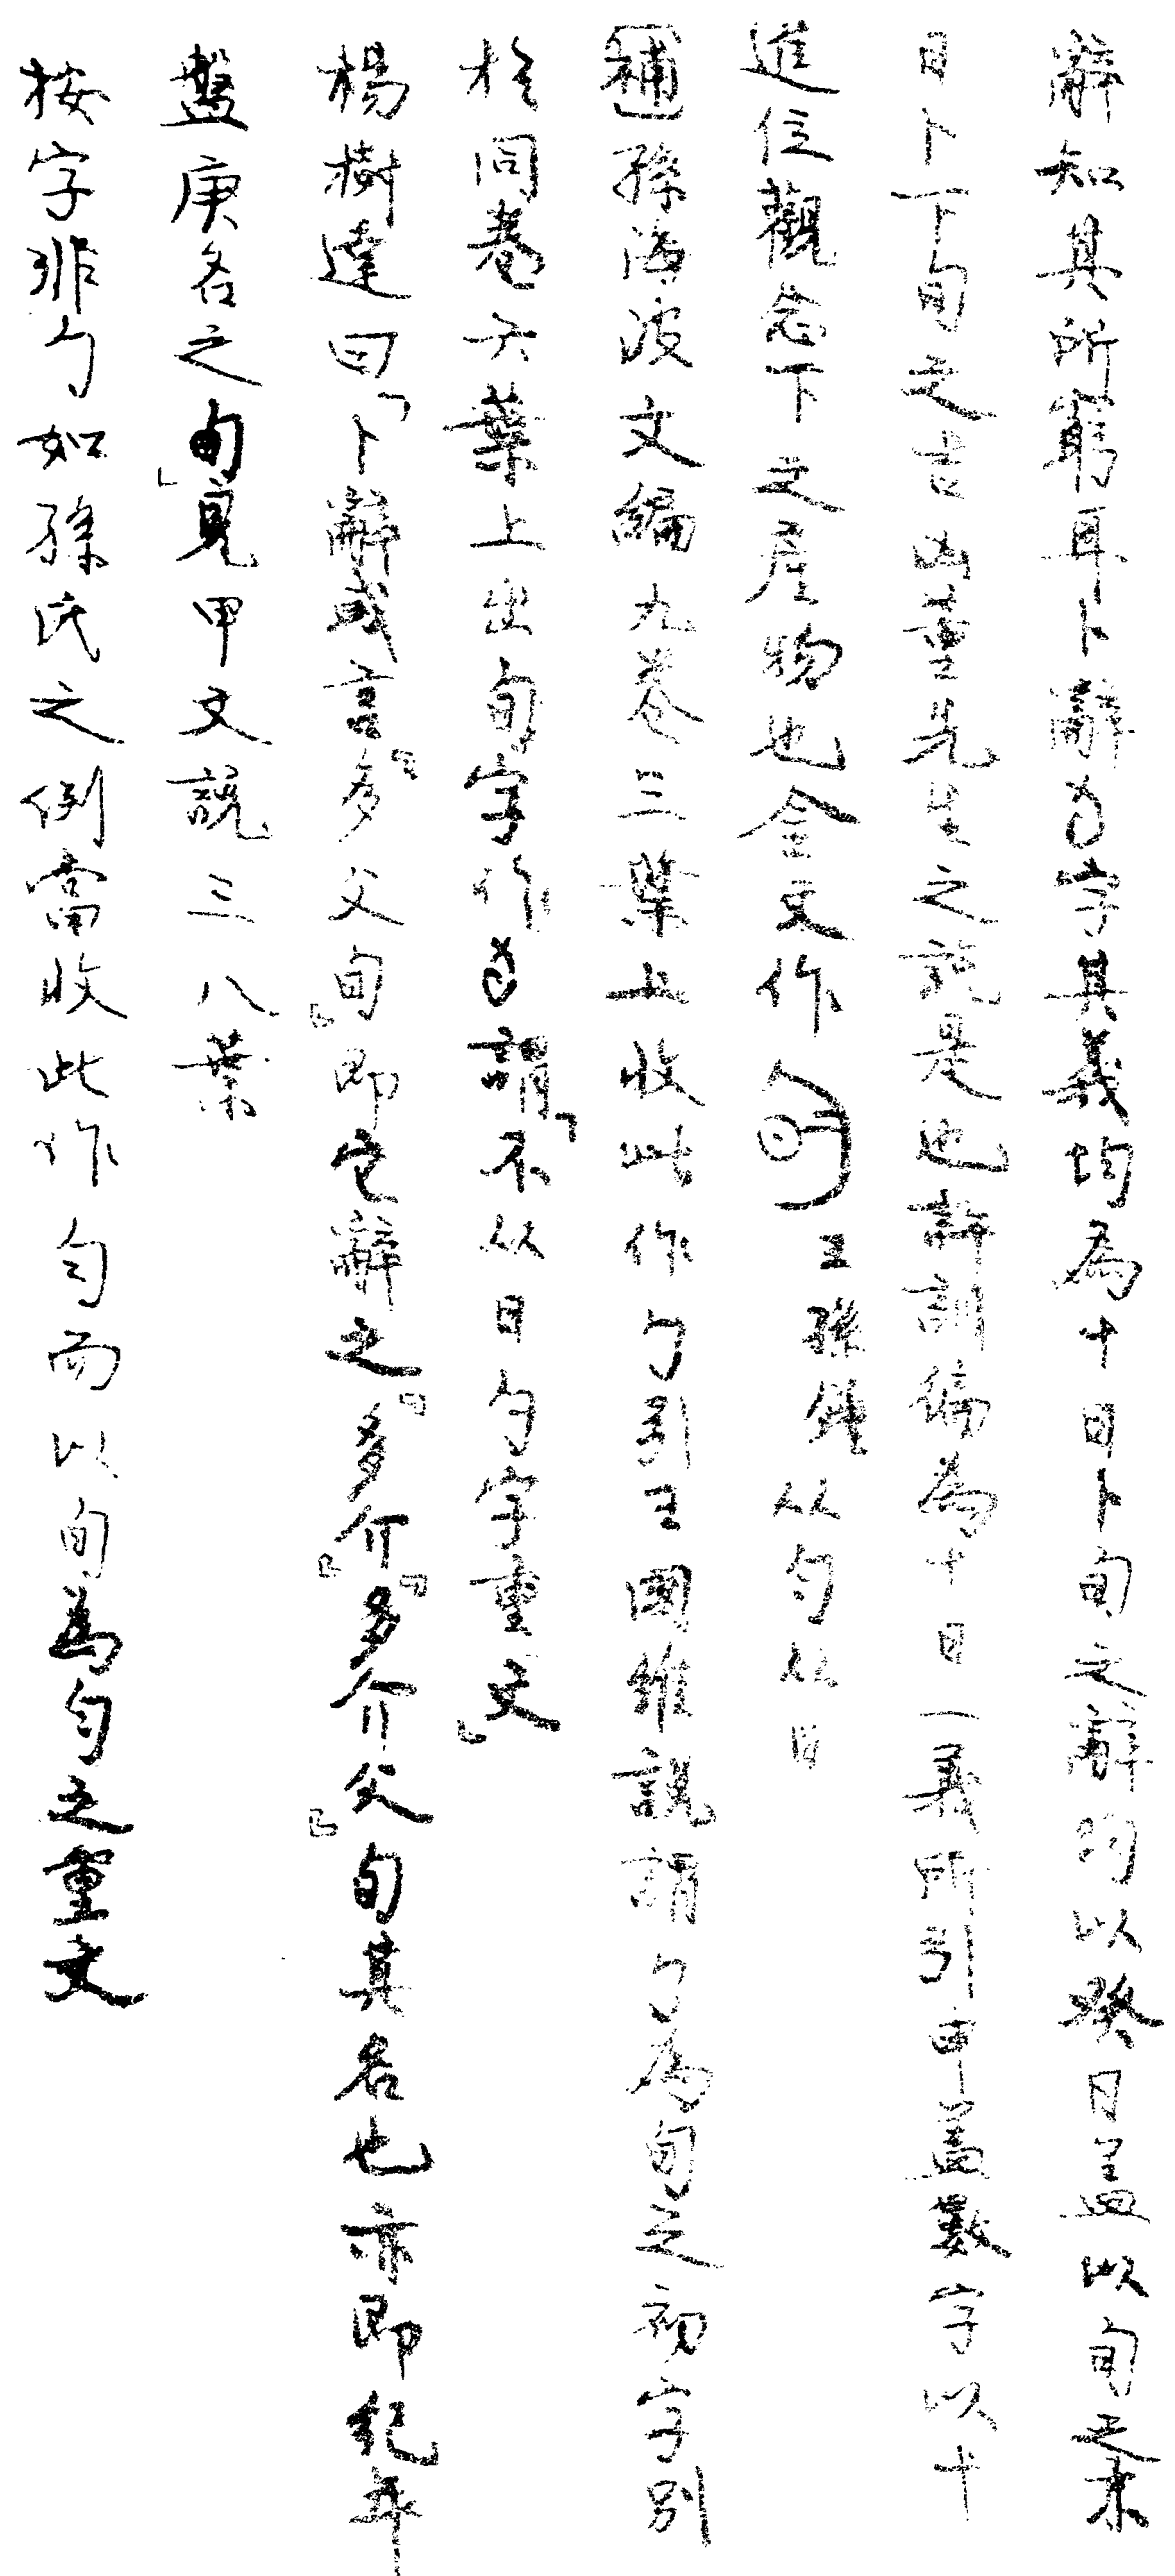 辭知其所窮耳卜辭字其義均為十日卜旬之辭均以癸日蓋以旬之末
日卜下旬之吉凶董先生之說是也許訓徧為十日一義所引申蓋數字以十
進位觀念下之產物也金文作王孫鐘从勻从日
補孫海波文編九卷三葉上收此作勹引王國維說謂勹為旬之初字別
於同卷六葉上出旬字作謂「不从日勹字重文」
楊樹達曰「卜辭或言『多父旬』即它辭之『多介』『多介父』旬其名也亦即紀年
盤庚名之旬」見甲文說三八葉
按字非勹如孫氏之例當收此作勻而以旬為勻之重文